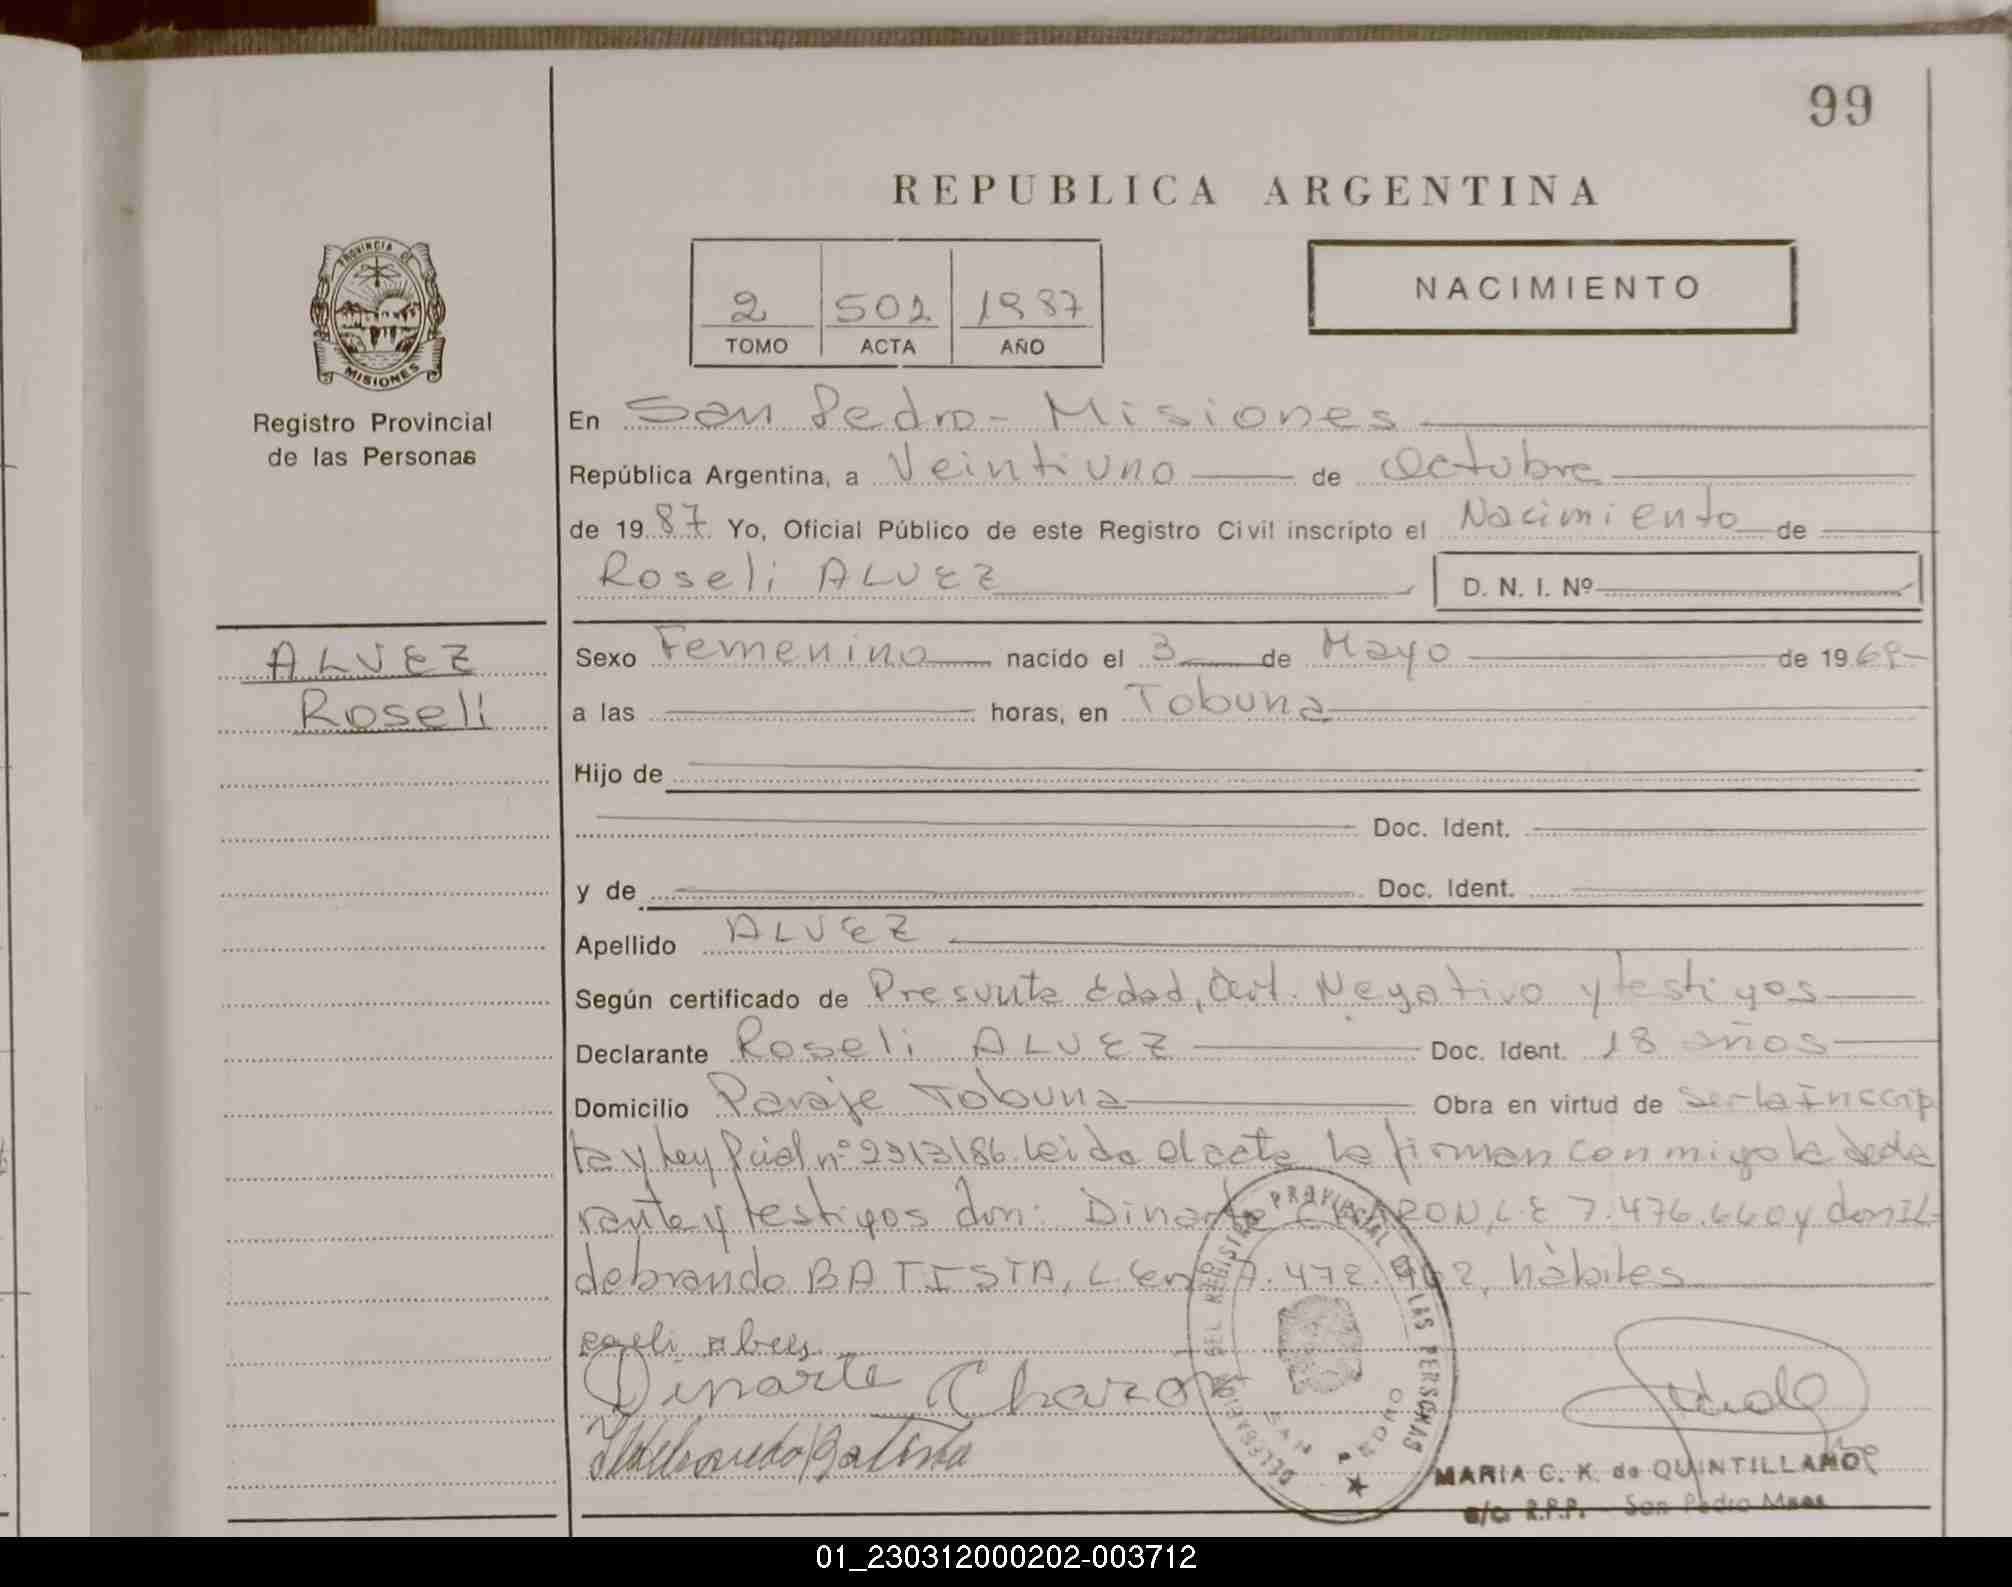 99
REPUBLICA ARGENTINA
PROVINCIA DE
MISIONES
Registro Provincial
de las Personas
2 501 1987
TOMO ACTA AÑO
NACIMIENTO
En San Pedro - Misiones
República Argentina, a Veintiuno de Octubre
de 1987. Yo, Oficial Público de este Registro Civil inscripto el Nacimiento de
Roseli ALVEZ D. N. I. Nº
ALVEZ
Roseli
Sexo Femenino nacido el 3 de Mayo de 1969
a las horas, en Tobuna
Hijo de
Doc. Ident.
y de Doc. Ident.
Apellido ALVEZ
Según certificado de Presunta Edad, Cert. Negativo y testigos
Declarante Roseli ALVEZ Doc. Ident. 18 años
Domicilio Paraje Tobuna Obra en virtud de ser la Inscrip
ta y Ley Pcial nº 2313/86. Leida el acta la firman conmigo la decla
rante y testigos don: Dinarte CHARON, L.E 7.476.440 y don Il-
debrando BATISTA, L. en 7.472.962, hábiles
Dinarte Charon
Ildebrando Batista
DELEGACION DEL REGISTRO PROVINCIAL DE LAS PERSONAS
SAN PEDRO
MARIA C. K. de QUINTILLAN
a/c. R.P.P. - San Pedro Mnes
01_230312000202-003712